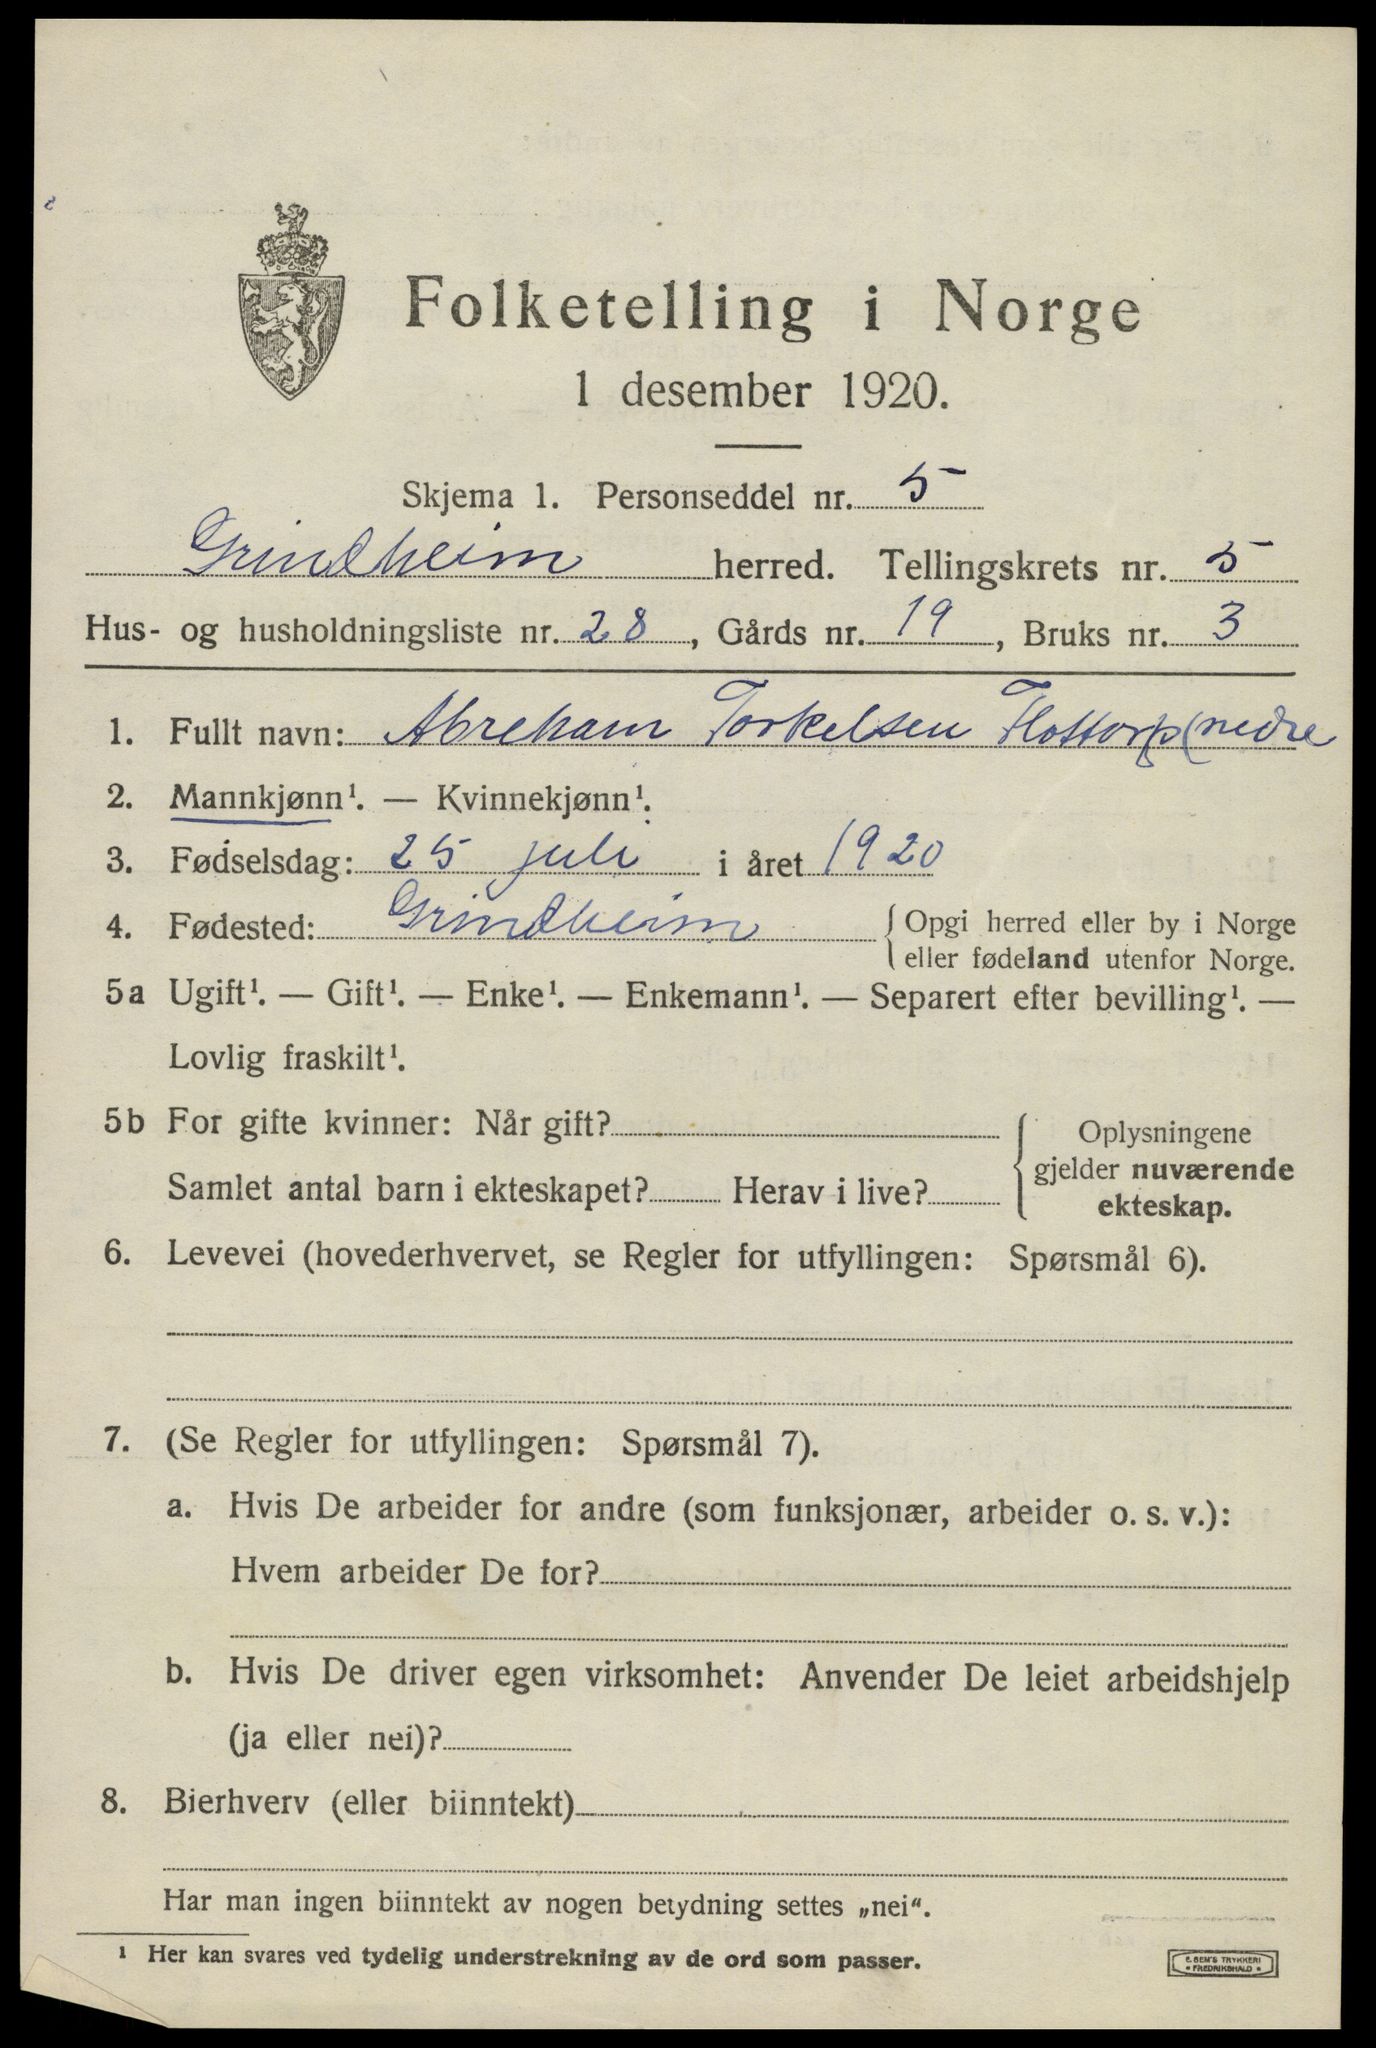 Folketelling i Norge
1 desember 1920.
Skjema 1. Personseddel nr. 5
Grindheim herred. Tellingskrets nr. 5
Hus- og husholdningsliste nr. 28, Gårds nr. 19, Bruks nr. 3
1. Fullt navn: Abreham Torkelsen Flottorp (nedre
2. Mannkjønn¹. — Kvinnekjønn¹.
3. Fødselsdag: 25 juli i året 1920
4. Fødested: Grindheim { Opgi herred eller by i Norge
eller fødeland utenfor Norge.
5a Ugift¹. — Gift¹. — Enke¹. — Enkemann¹. — Separert efter bevilling¹. —
Lovlig fraskilt¹.
5b For gifte kvinner: Når gift? { Oplysningene
gjelder nuværende
Samlet antal barn i ekteskapet? Herav i live?
ekteskap.
6. Levevei (hovederhvervet, se Regler for utfyllingen: Spørsmål 6).
7. (Se Regler for utfyllingen: Spørsmål 7).
a. Hvis De arbeider for andre (som funksjonær, arbeider o. s. v.):
Hvem arbeider De for?
b. Hvis De driver egen virksomhet: Anvender De leiet arbeidshjelp
(ja eller nei)?
8. Bierhverv (eller biinntekt)
Har man ingen biinntekt av nogen betydning settes „nei“.
¹ Her kan svares ved tydelig understrekning av de ord som passer.
E. SEM'S TRYKKERI
• FREDRIKSHALD •